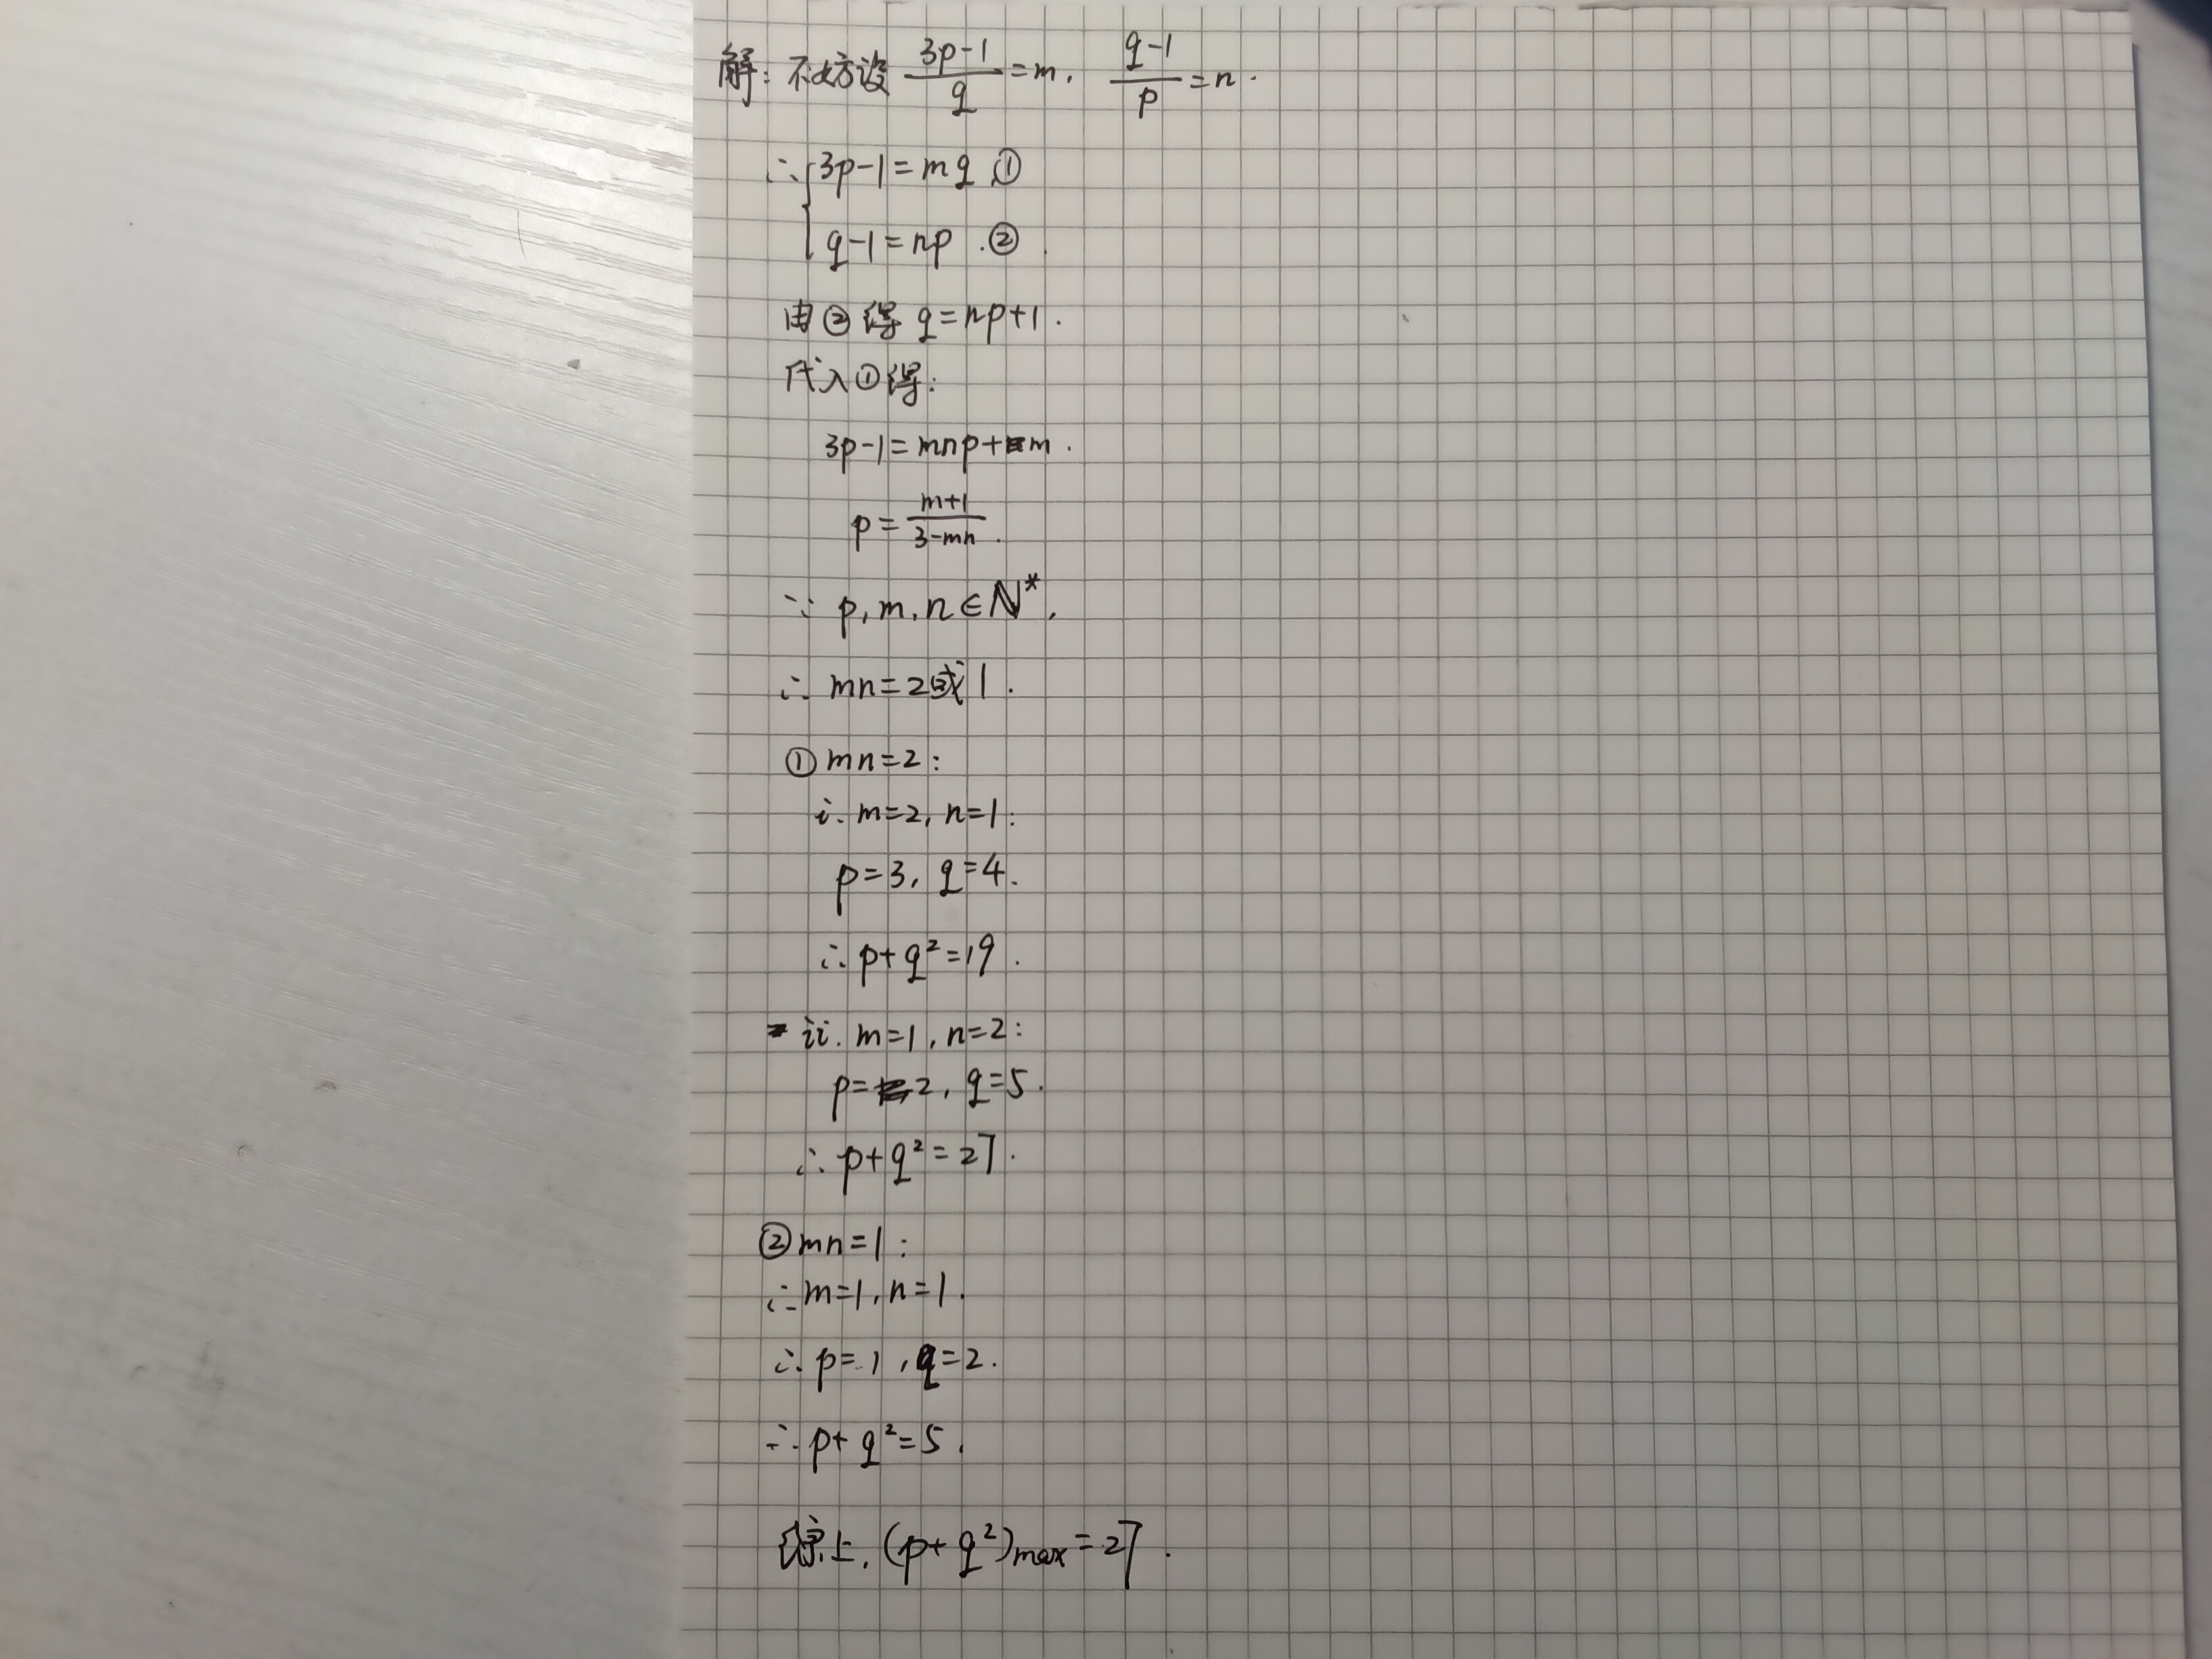 解：不妨设 (3p-1)/q = m，(q-1)/p = n.
∴ { 3p-1=mq ①
q-1=np . ②
由②得 q=np+1 .
代入①得：
3p-1=mnp+m .
p = (m+1)/(3-mn) .
∵ p, m, n ∈ ℕ* ,
∴ mn=2或1 .
① mn=2 :
i. m=2, n=1 :
p=3, q=4 .
∴ p+q²=19 .
ii. m=1, n=2 :
p=2, q=5 .
∴ p+q²=27 .
② mn=1 :
∴ m=1, n=1 .
∴ p=1, q=2 .
∴ p+q²=5 .
综上, (p+q²)max=27 .